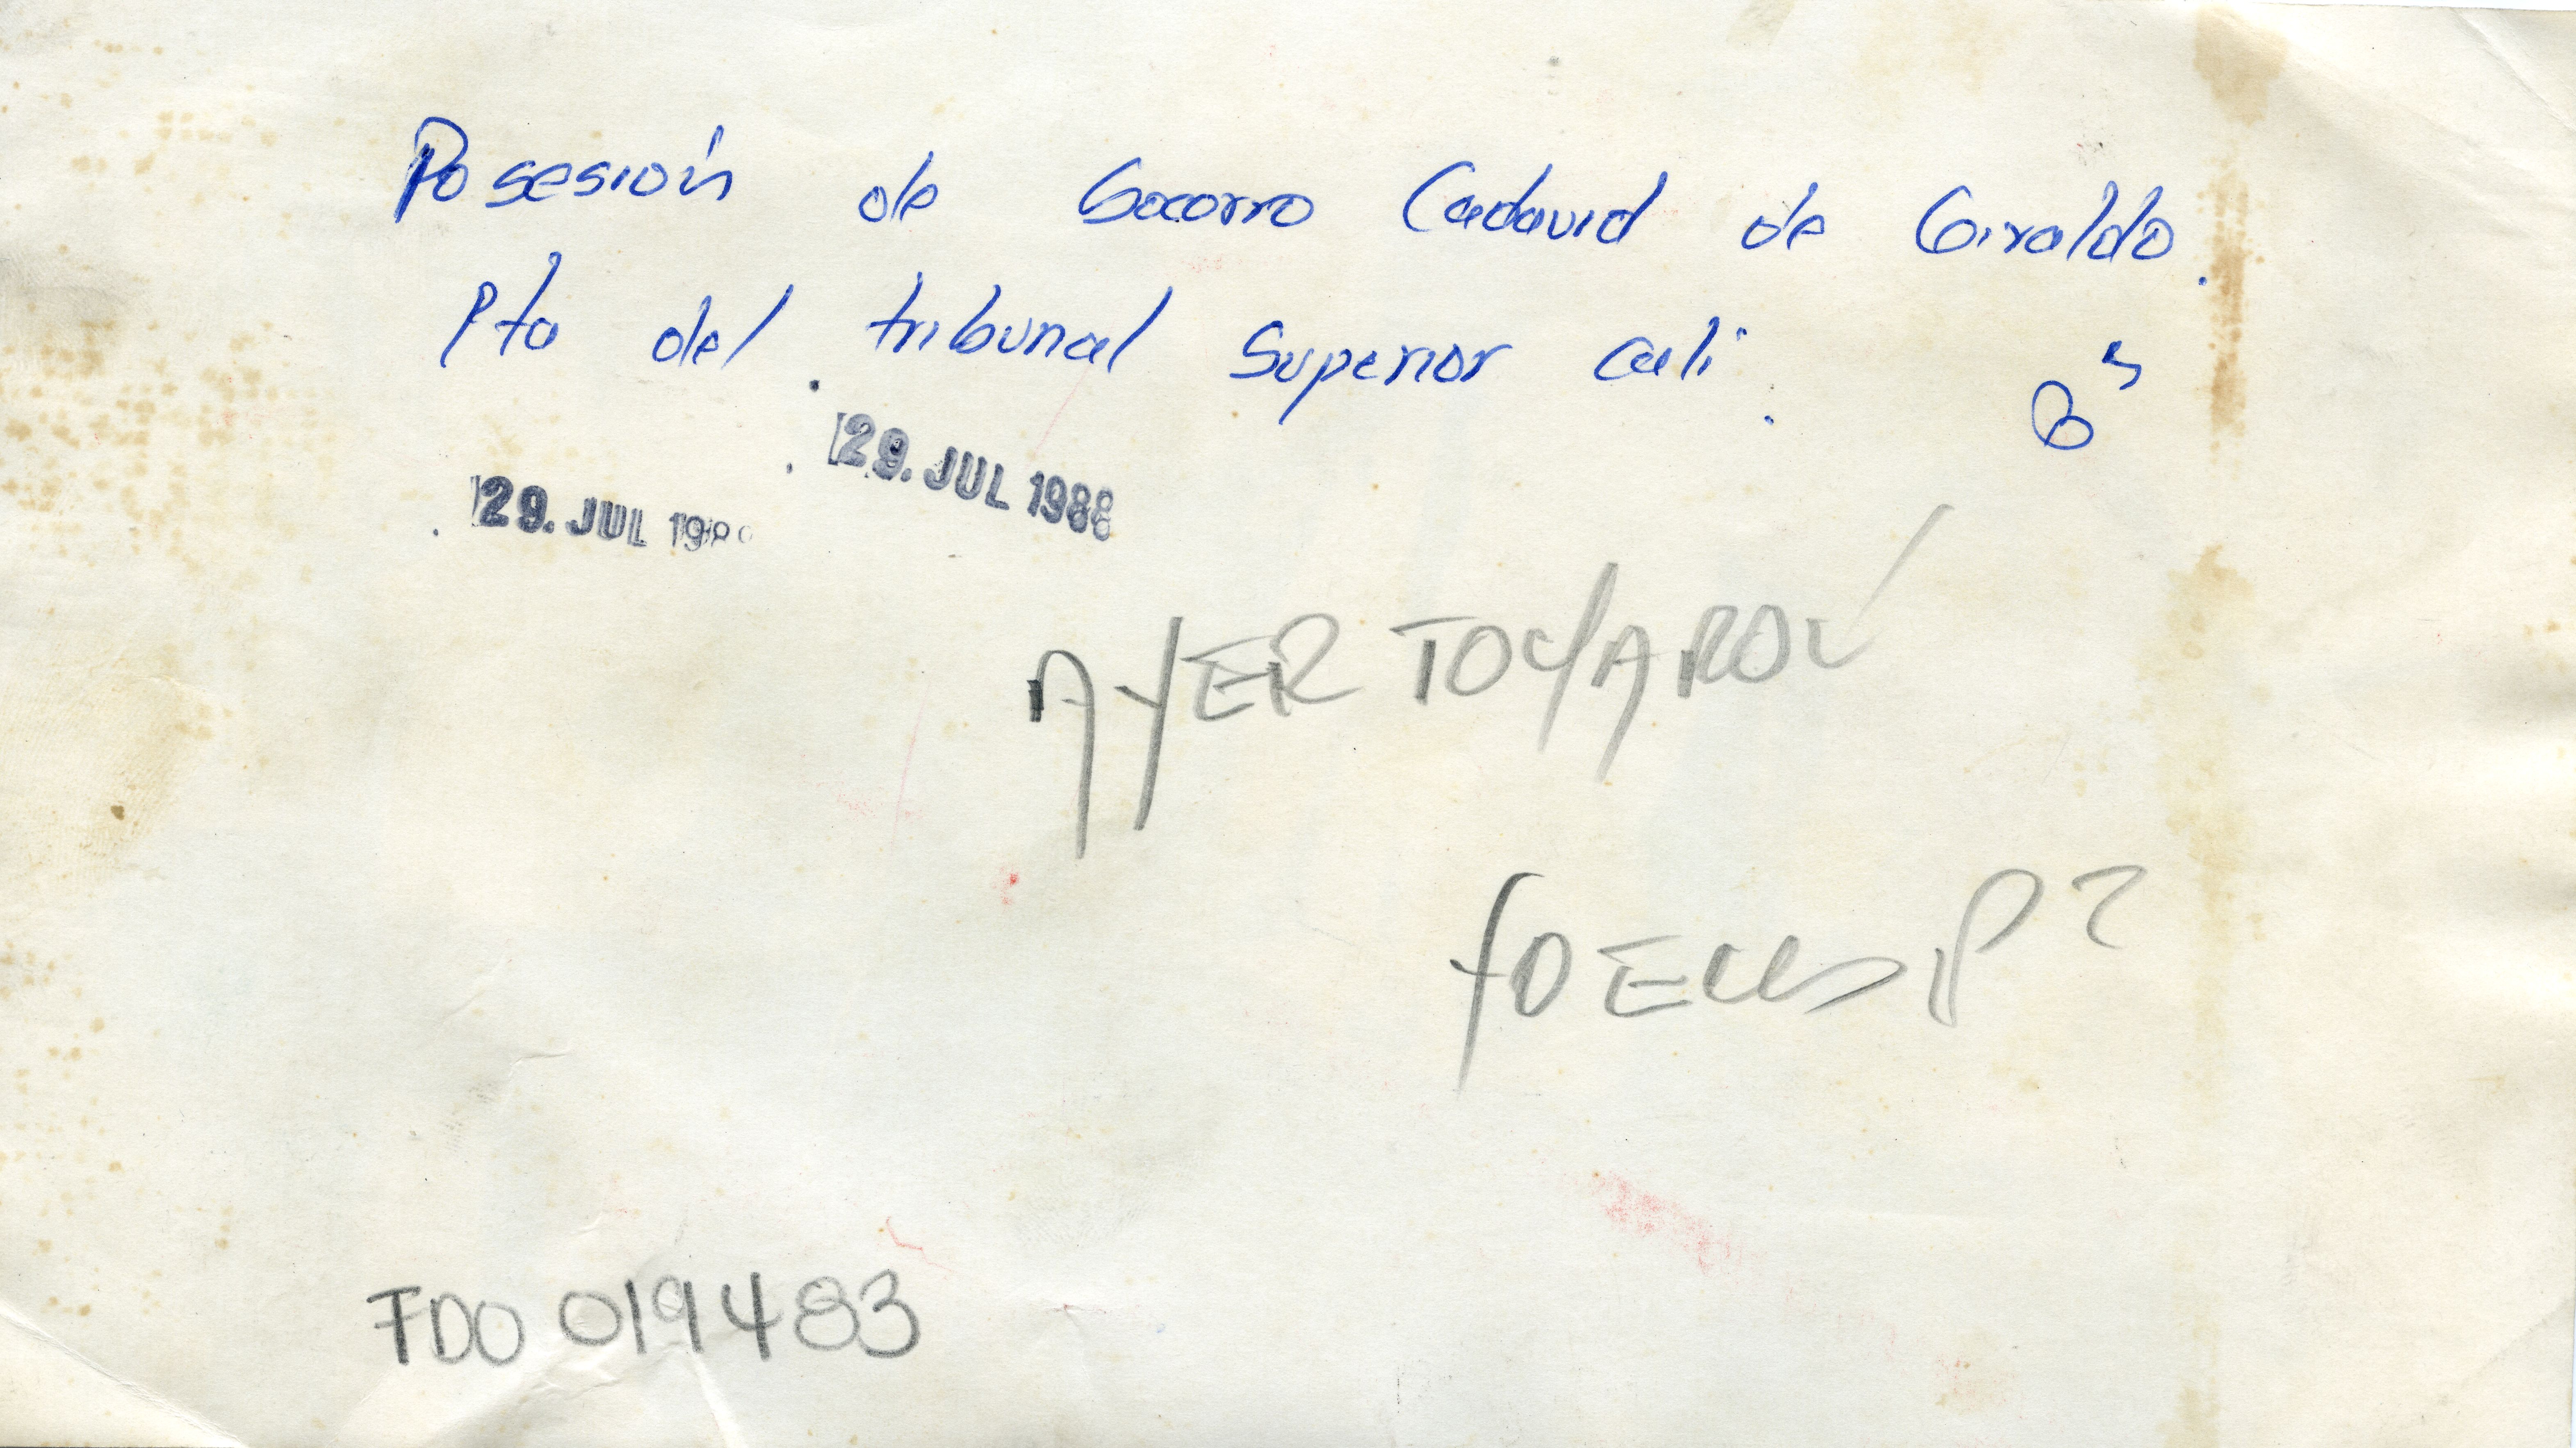 Posesión de Socorro Cadavid de Giraldo.
Pta del tribunal Superior cali.
29. JUL 1988
29. JUL
AYER TOMARON
FDO 019483